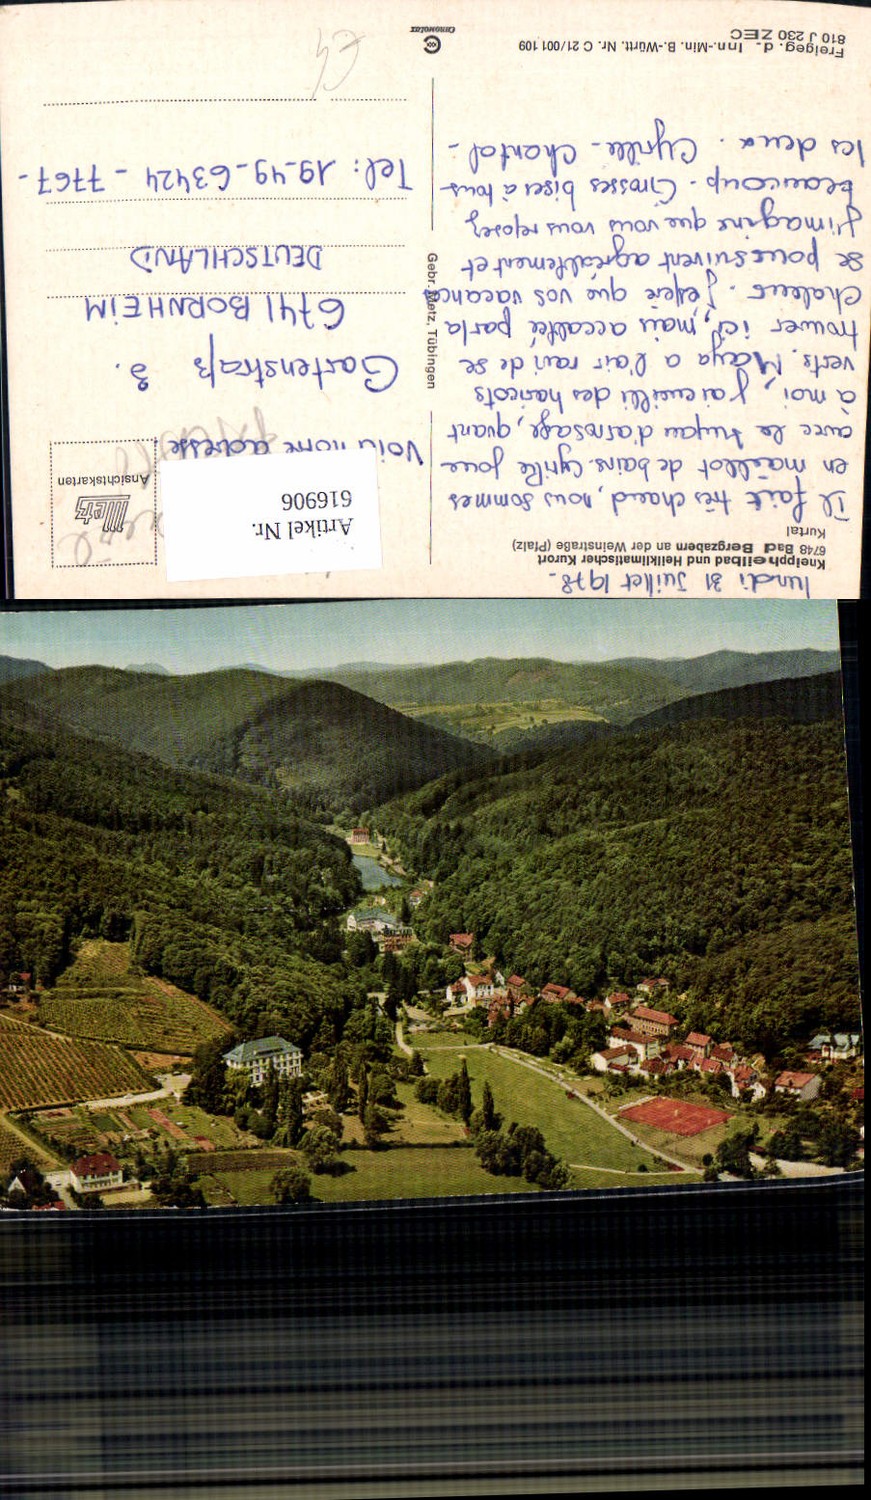 lundi 31 Juillet 1978-
Kneippheilbad und Heilklimatischer Kurort
6748 Bad Bergzabern an der Weinstraße (Pfalz)
Kurtal
Il fait très chaud, nous sommes
en maillot de bains. Cyrille joue
avec le tuyau d'arrosage, quant
à moi, j'ai cueilli des haricots
verts. Maya a l'air ravi de se
trouver ici, mais accablée par la
chaleur. J'espère que vos vacances
se poursuivent agréablement et
j'imagine que vous vous reposez
beaucoup. Grosses bises à tous
les deux. Cyrille - Chantal -
Freigeg. d. Inn.-Min. B.-Württ. Nr. C 21/001 109
810 J 230 ZEC
Gebr. Metz, Tübingen
CHROMOLUX
Metz
Ansichtskarten
Artikel Nr.
616906
Voici notre adresse
Gartenstraß 3.
6741 BORNHEIM
DEUTSCHLAND
Tel: 19-49-63424 - 7767-